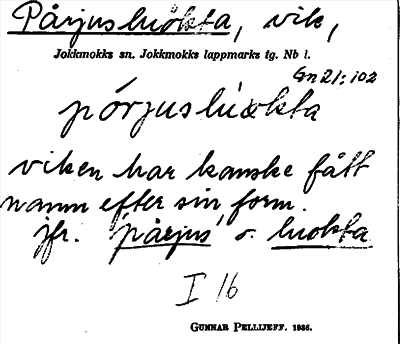 Pårjusluokta, vik,
Jokkmokks sn. Jokkmokks lappmarks tg. Nb l.
Gn 21:102
pórjuslúokta
viken har kanske fått
namn efter sin form.
jfr. pårjus o. luokta
I 16
GUNNAR PELLIJEFF. 1936.